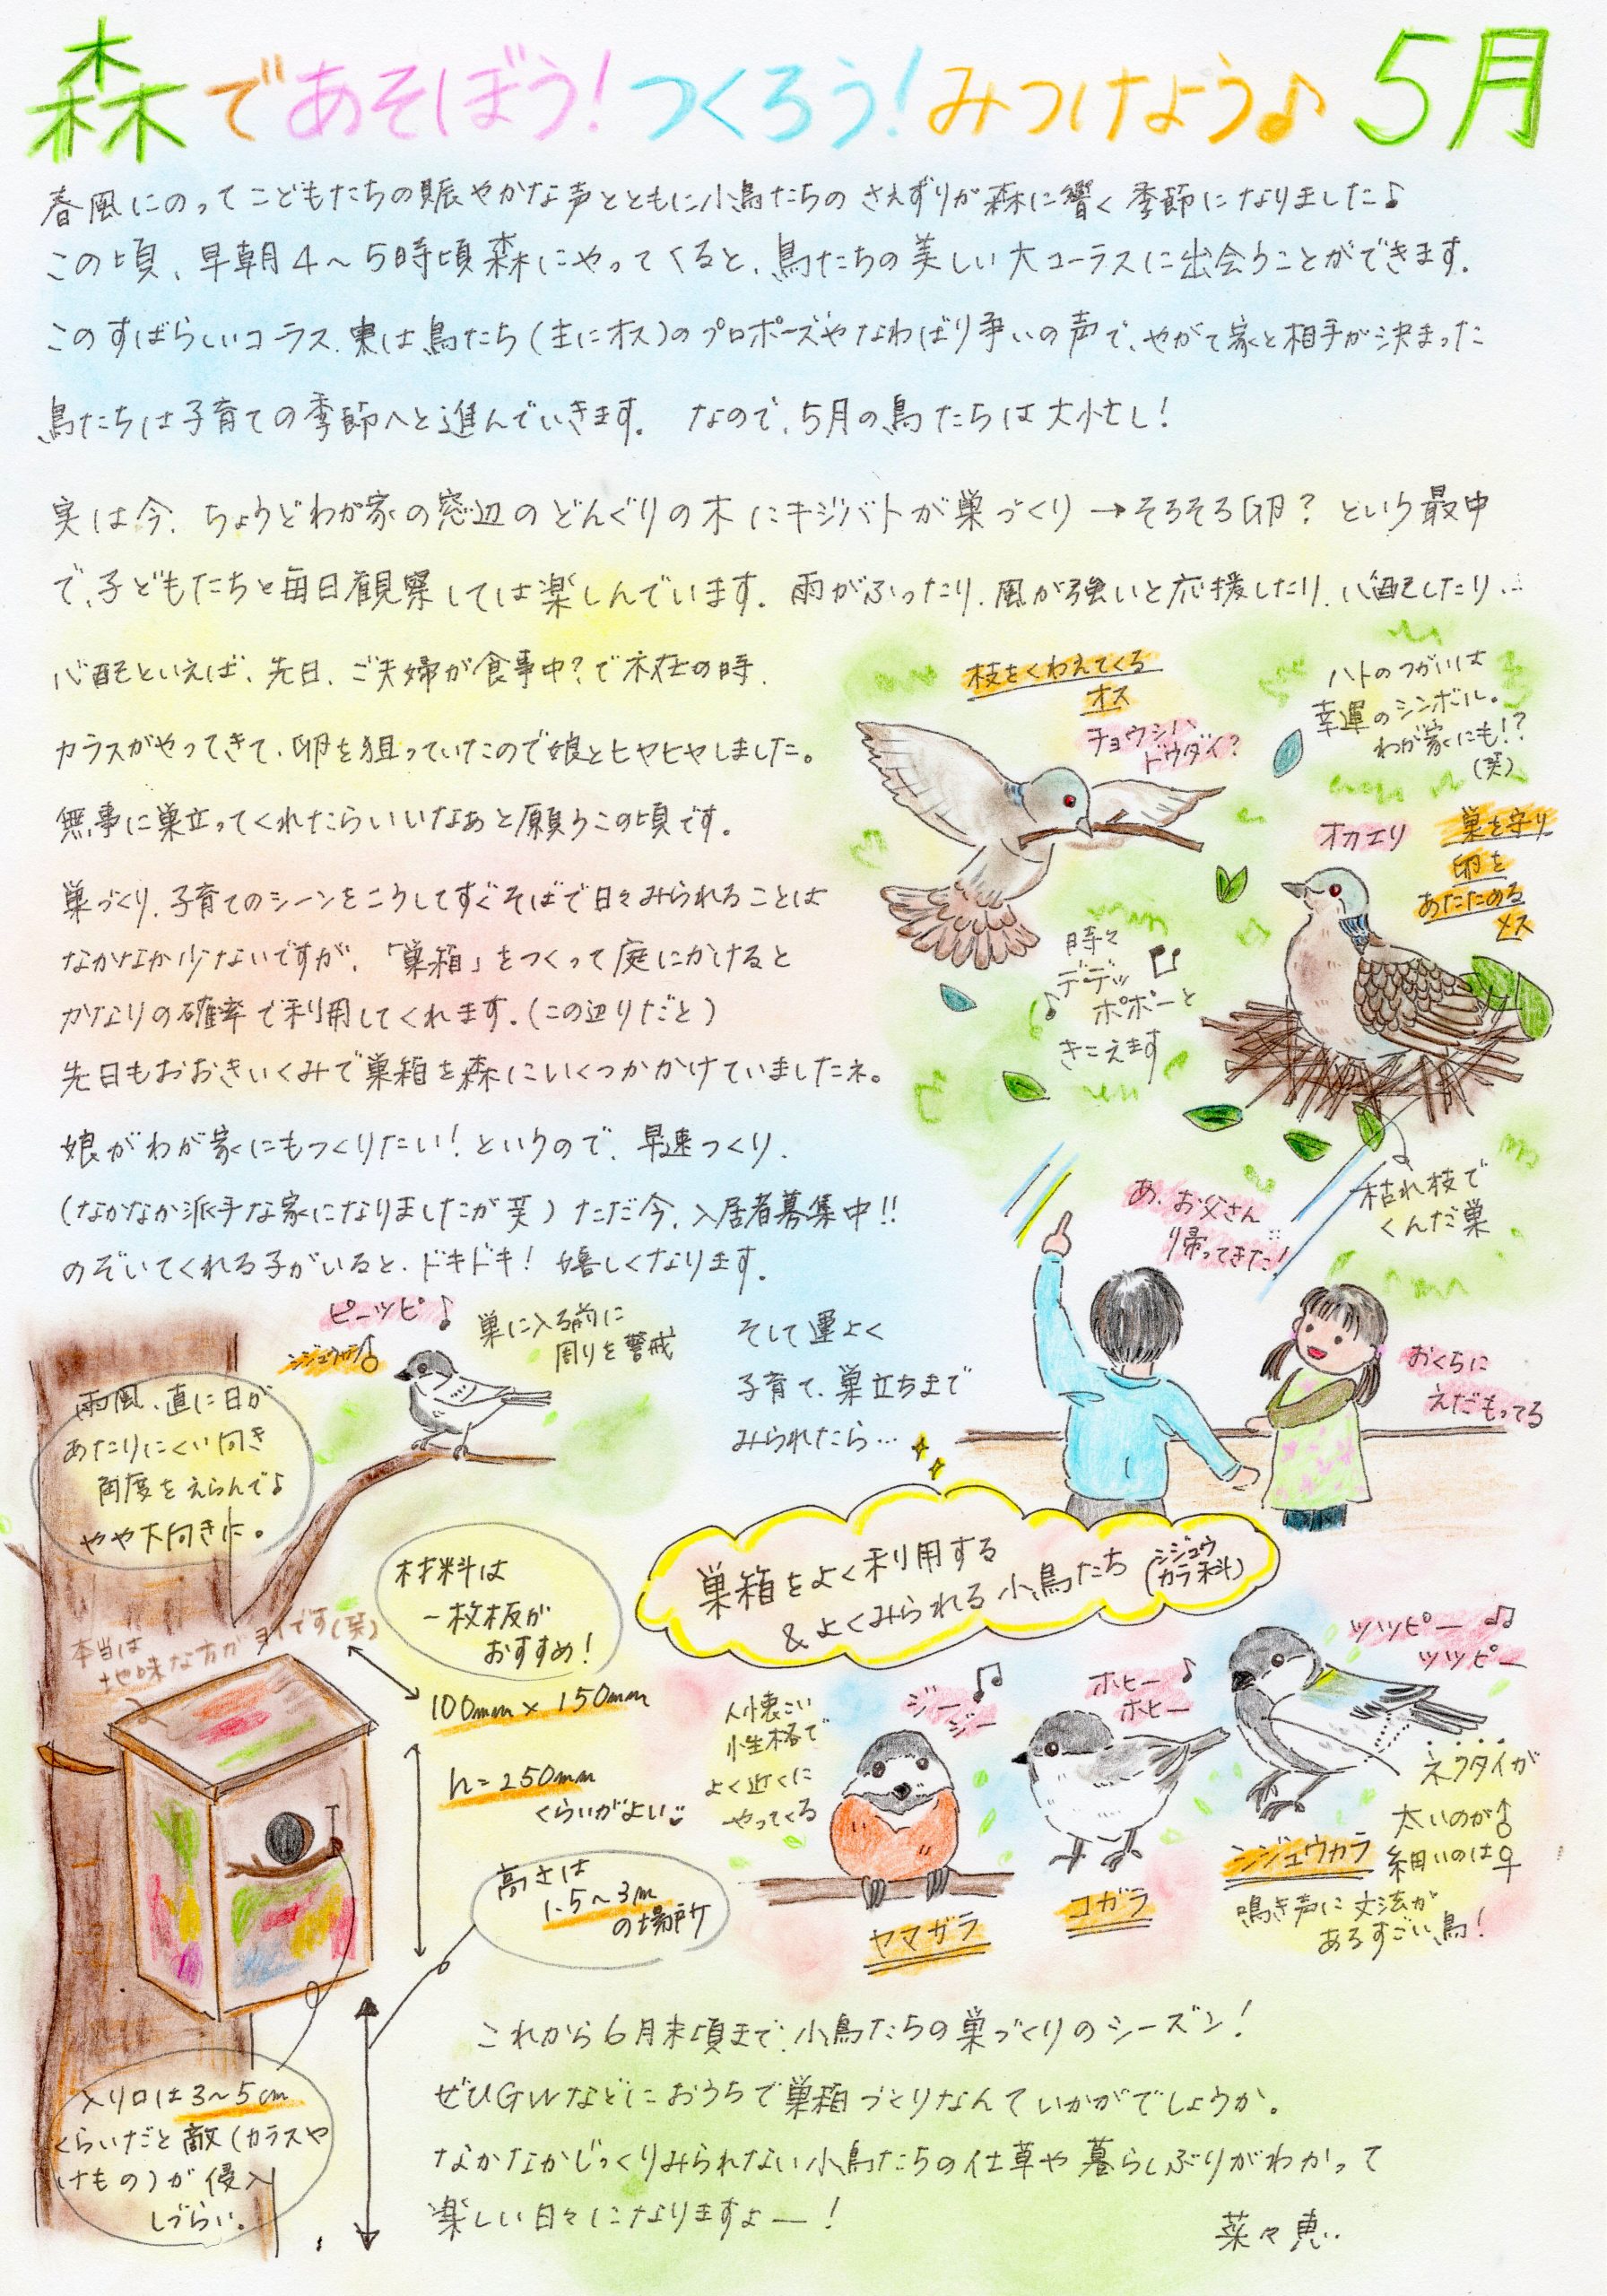 森であそぼう!つくろう!みつけよう♪ 5月
春風にのってこどもたちの賑やかな声とともに小鳥たちのさえずりが森に響く季節になりました♪
この頃、早朝4〜5時頃森にやってくると、鳥たちの美しい大コーラスに出会うことができます。
このすばらしいコーラス、実は鳥たち(主にオス)のプロポーズやなわばり争いの声で、やがて家と相手が決まった
鳥たちは子育ての季節へと進んでいきます。 なので、5月の鳥たちは大忙し!
実は今、ちょうどわが家の窓辺のどんぐりの木にキジバトが巣づくり→そろそろ卵? という最中
で、子どもたちと毎日観察しては楽しんでいます。雨がふったり、風が強いと応援したり、心配したり…
心配といえば、先日、ご夫婦が食事中?で不在の時、
カラスがやってきて、卵を狙っていたので娘とヒヤヒヤしました。
無事に巣立ってくれたらいいなぁと願うこの頃です。
巣づくり、子育てのシーンをこうしてすぐそばで日々みられることは
なかなか少ないですが、「巣箱」をつくって庭にかけると
かなりの確率で利用してくれます。(この辺りだと)
先日もおおきいくみで巣箱を森にいくつかかけていましたネ。
娘がわが家にもつくりたい!というので、早速つくり、
(なかなか派手な家になりましたが笑)ただ今、入居者募集中!!
のぞいてくれる子がいると、ドキドキ! 嬉しくなります。
そして運よく
子育て、巣立ちまで
みられたら…
枝をくわえてくる
オス
チョウシハ
ドウダイ?
ハトのつがいは
幸運のシンボル。
わが家にも!?
(笑)
オカエリ
巣を守り
卵を
あたためる
メス
時々
デデッ
ポポーと
きこえます
枯れ枝で
くんだ巣
あ、お父さん
帰ってきた!
おくちに
えだもってる
ピーツピ♪
シジュウカラ♂
巣に入る前に
周りを警戒
雨風、直に日が
あたりにくい向き
角度をえらんで♪
やや下向きに。
材料は
一枚板が
おすすめ!
本当は
地味な方がヨイです(笑)
100mm×150mm
h=250mm
くらいがよい
高さは
1.5〜3m
の場所
入り口は3〜5cm
くらいだと敵(カラスや
けもの)が侵入
しづらい。
巣箱をよく利用する
&よくみられる小鳥たち(シジュウカラ科)
人懐こい
性格で
よく近くに
やってくる
ジー
ジー
ヤマガラ
ホヒー♪
ホヒー
コガラ
ツツピー♫
ツツピー
シジュウカラ
ネクタイが
太いのが♂
細いのは♀
鳴き声に文法が
あるすごい鳥!
これから6月末頃まで、小鳥たちの巣づくりのシーズン!
ぜひGWなどにおうちで巣箱づくりなんていかがでしょうか。
なかなかじっくりみられない小鳥たちの仕草や暮らしぶりがわかって
楽しい日々になりますよー!
菜々恵